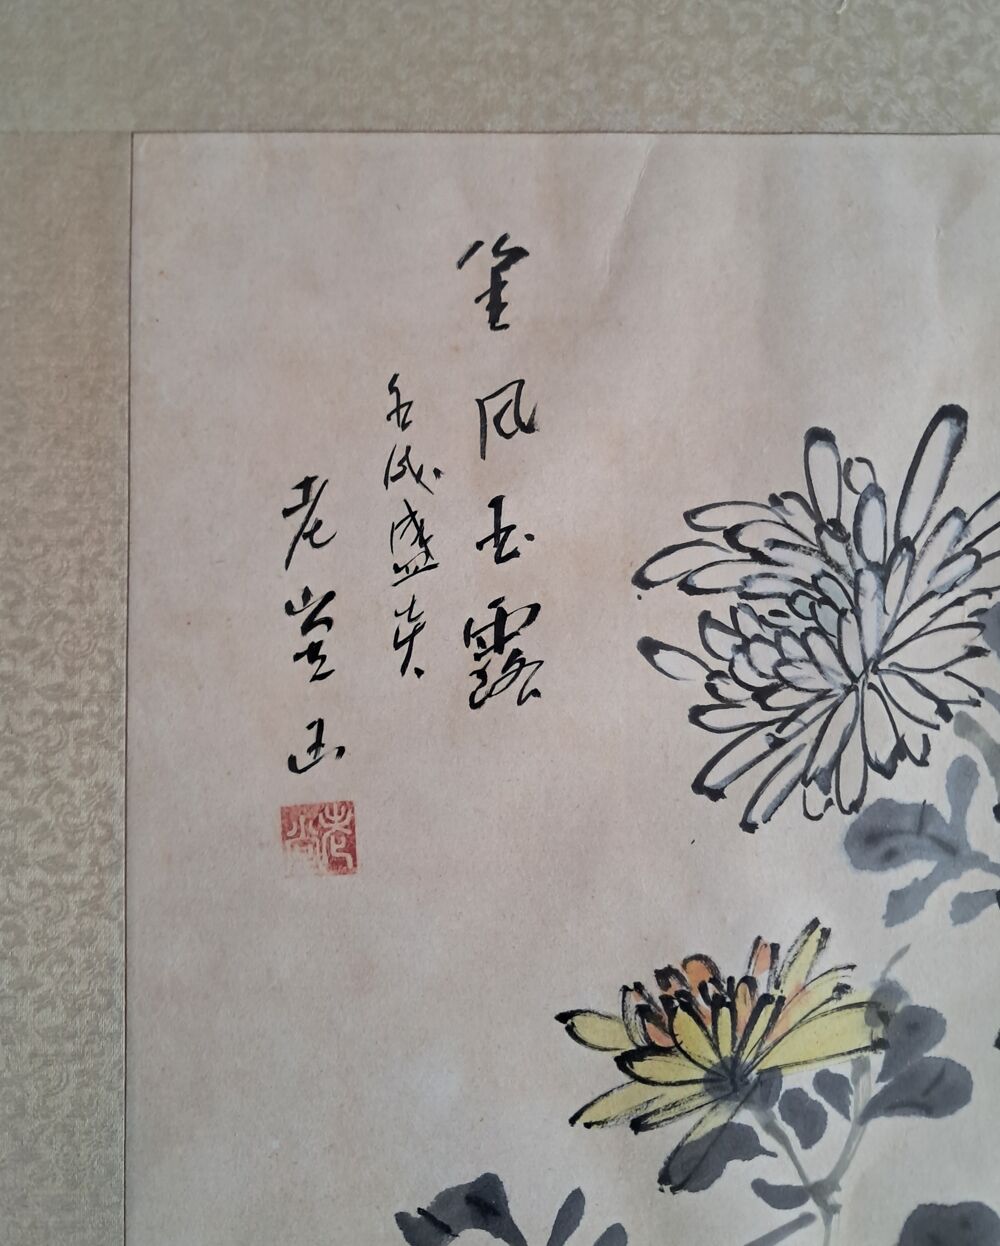 金风玉露
壬戌盛炎
老岩画